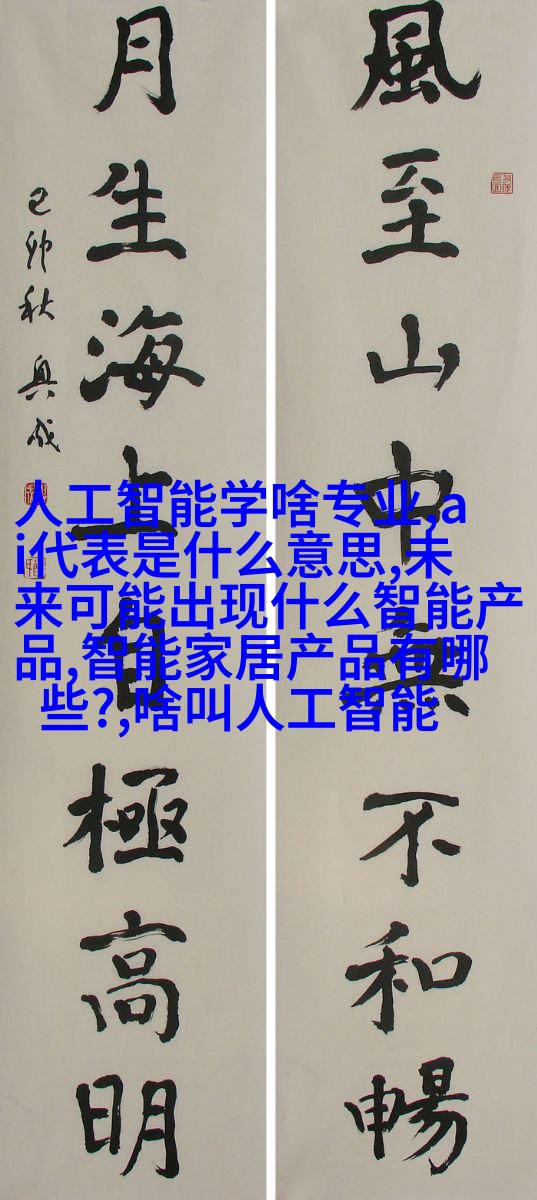 風至山中無不和暢
月生海上自極高明
己卯秋
人工智能学啥专业,a
i代表是什么意思,未
来可能出现什么智能产
品,智能家居产品有哪
些?,啥叫人工智能